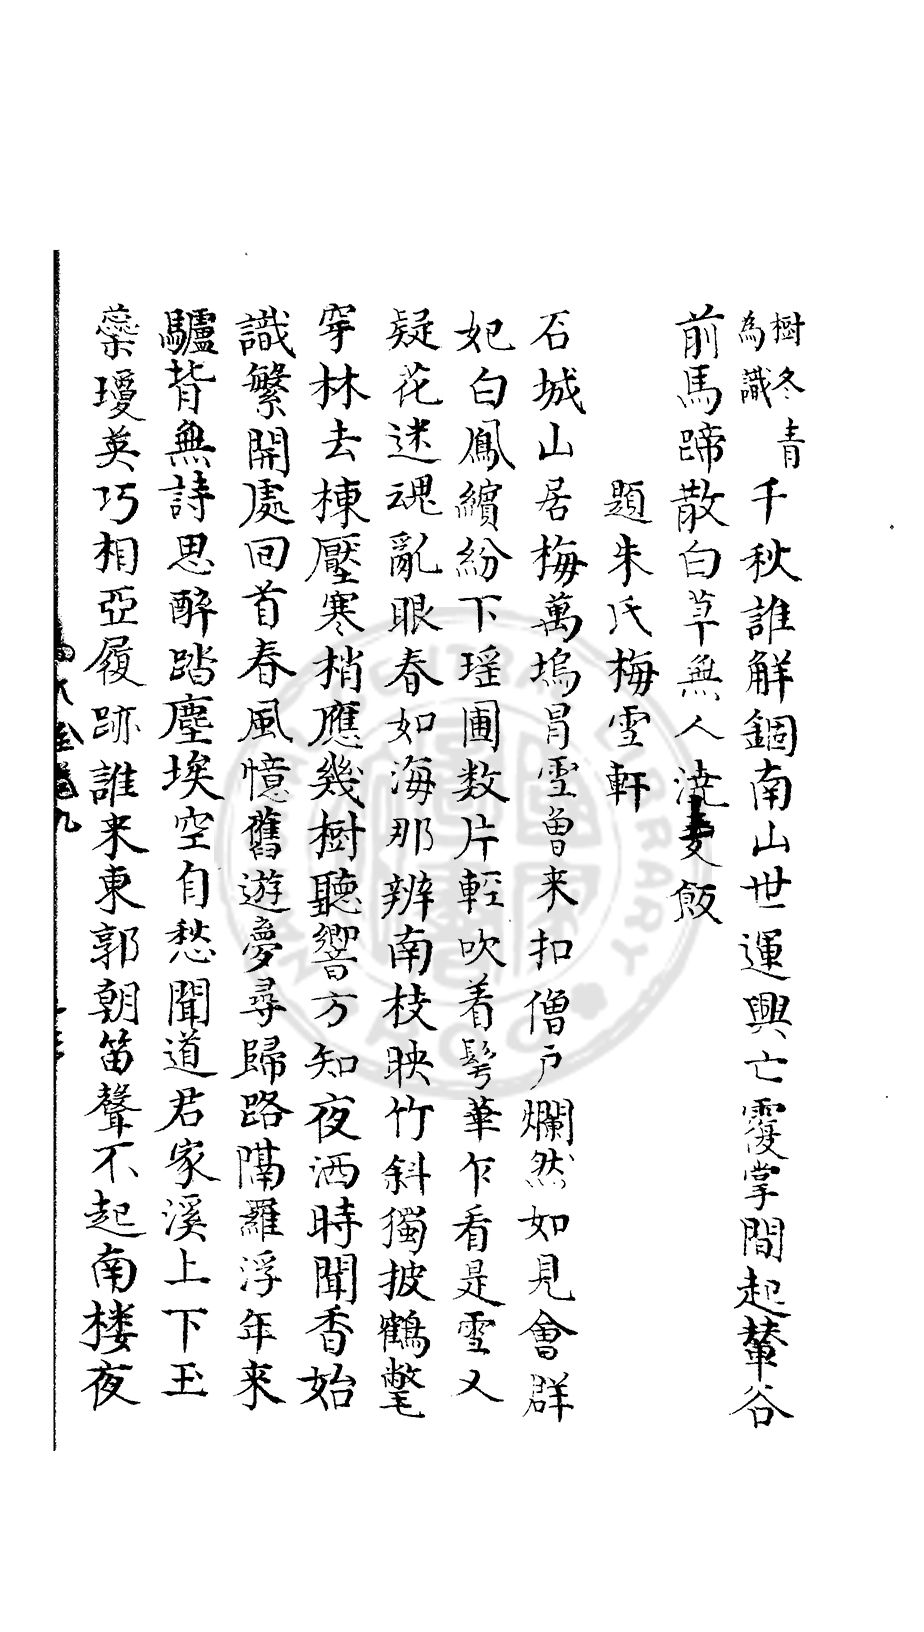 樹冬青
為識
千秋誰解錮南山世運興亡覆掌間起輦谷
前馬蹄散白草無人澆麥飯
題朱氏梅雪軒
石城山居梅萬塢冐雪曽来扣僧戸爛然如見會群
妃白鳳繽紛下瑶圃数片輕吹着髩華乍看是雪又
疑花迷魂亂眼春如海那辨南枝映竹斜獨披鶴氅
穿林去棟壓寒梢應幾樹聽響方知夜洒時聞香始
識繁開處回首春風憶舊遊夢尋歸路隔羅浮年来
驢背無詩思醉踏塵埃空自愁聞道君家溪上下玉
蘂瓊英巧相亞履跡誰来東郭朝笛聲不起南楼夜